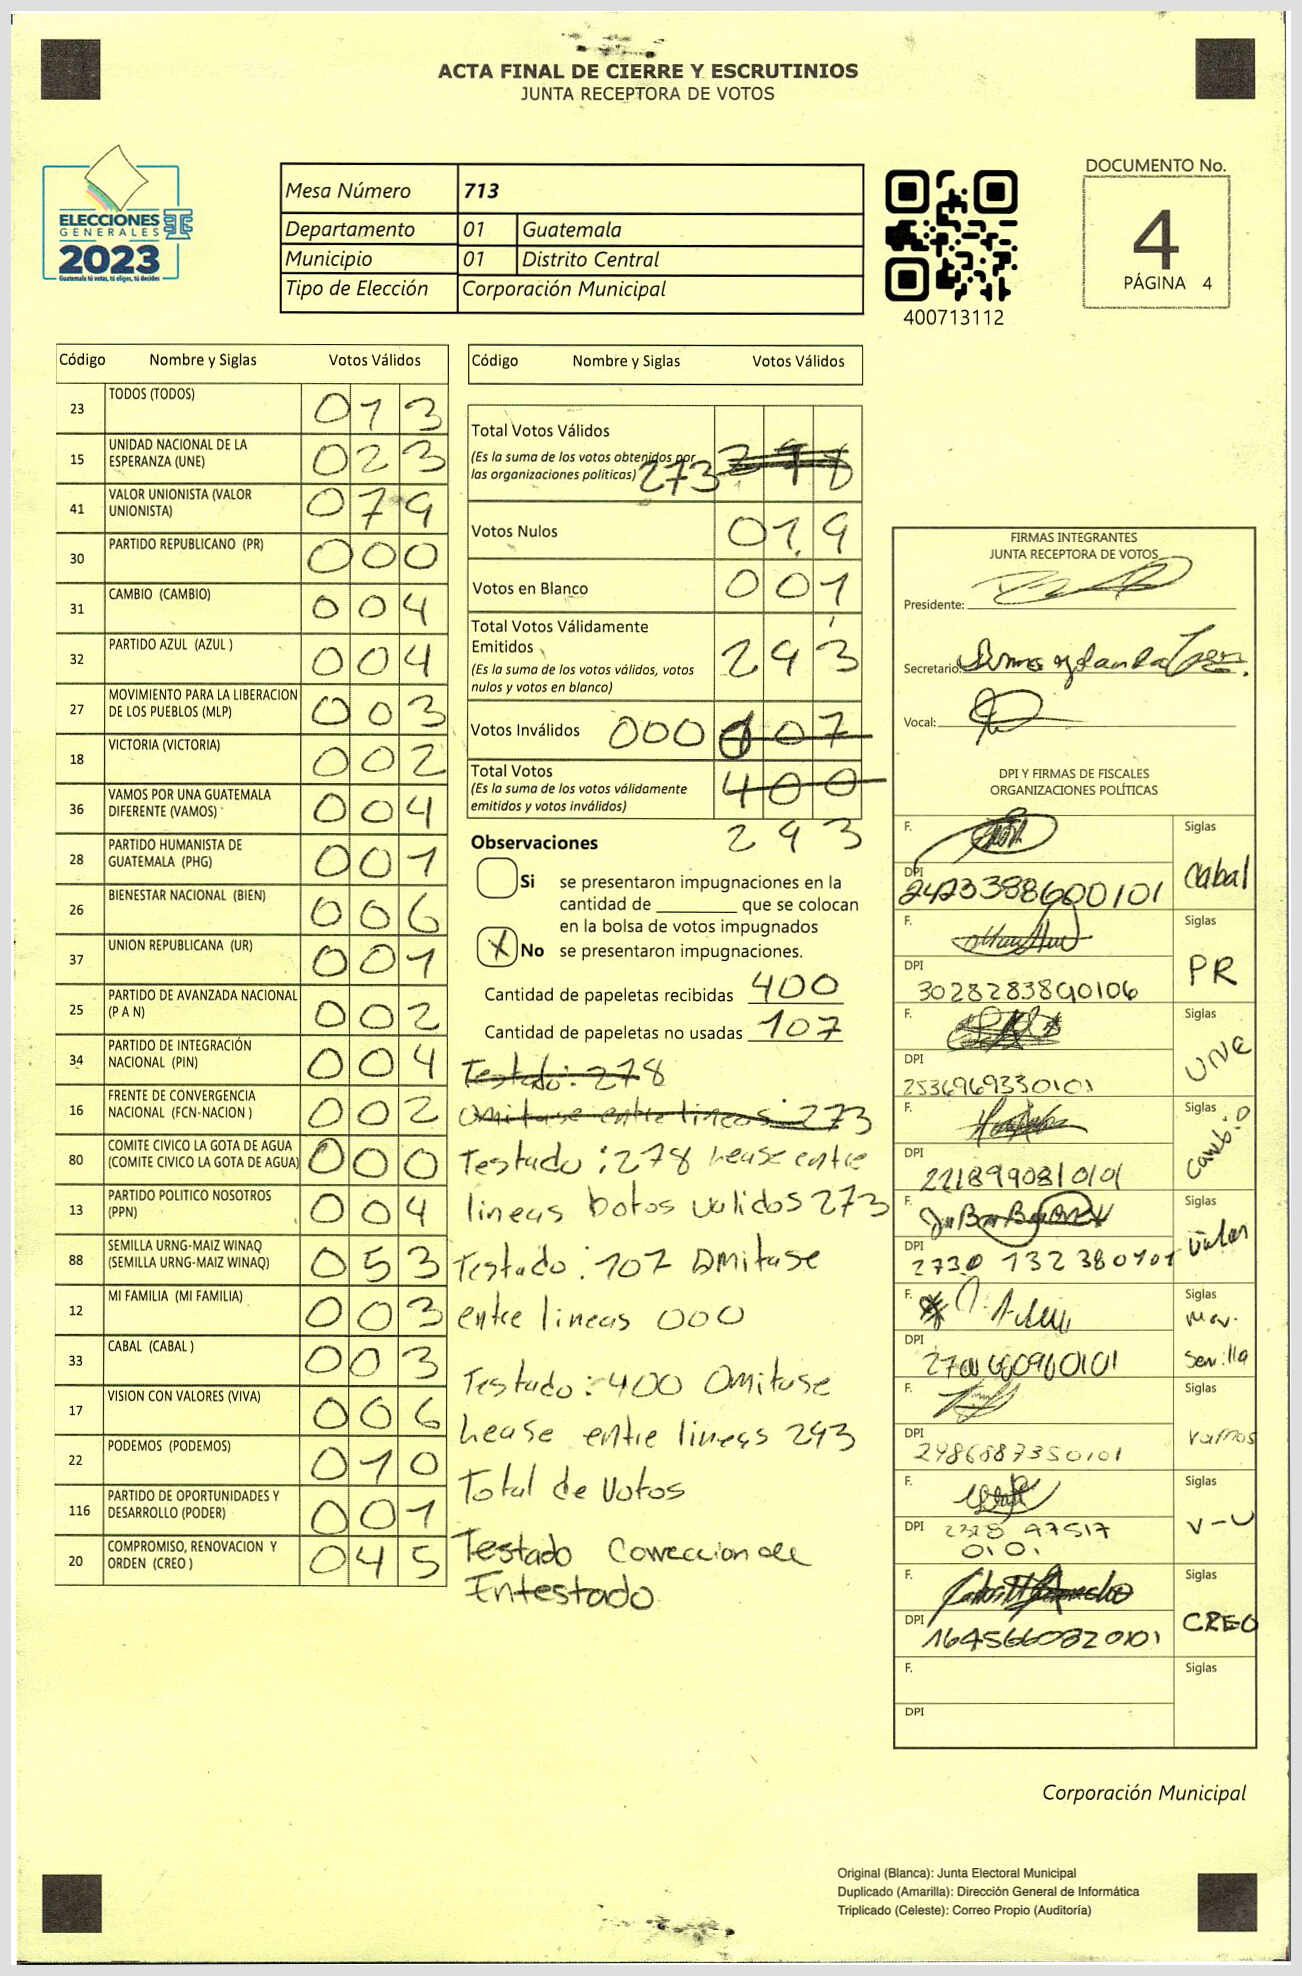 ACTA FINAL DE CIERRE Y ESCRUTINIOS
JUNTA RECEPTORA DE VOTOS
ELECCIONES
GENERALES
2023
Guatemala tú votas, tú eliges, tú decides
Mesa Número 713
Departamento 01 Guatemala
Municipio 01 Distrito Central
Tipo de Elección Corporación Municipal
400713112
DOCUMENTO No.
4
PÁGINA 4
Código Nombre y Siglas Votos Válidos
23 TODOS (TODOS) 013
15 UNIDAD NACIONAL DE LA ESPERANZA (UNE) 023
41 VALOR UNIONISTA (VALOR UNIONISTA) 079
30 PARTIDO REPUBLICANO (PR) 000
31 CAMBIO (CAMBIO) 004
32 PARTIDO AZUL (AZUL ) 004
27 MOVIMIENTO PARA LA LIBERACION DE LOS PUEBLOS (MLP) 003
18 VICTORIA (VICTORIA) 002
36 VAMOS POR UNA GUATEMALA DIFERENTE (VAMOS) 004
28 PARTIDO HUMANISTA DE GUATEMALA (PHG) 001
26 BIENESTAR NACIONAL (BIEN) 006
37 UNION REPUBLICANA (UR) 001
25 PARTIDO DE AVANZADA NACIONAL (P A N) 002
34 PARTIDO DE INTEGRACIÓN NACIONAL (PIN) 004
16 FRENTE DE CONVERGENCIA NACIONAL (FCN-NACION ) 002
80 COMITE CIVICO LA GOTA DE AGUA (COMITE CIVICO LA GOTA DE AGUA) 000
13 PARTIDO POLITICO NOSOTROS (PPN) 004
88 SEMILLA URNG-MAIZ WINAQ (SEMILLA URNG-MAIZ WINAQ) 053
12 MI FAMILIA (MI FAMILIA) 003
33 CABAL (CABAL ) 003
17 VISION CON VALORES (VIVA) 006
22 PODEMOS (PODEMOS) 010
116 PARTIDO DE OPORTUNIDADES Y DESARROLLO (PODER) 001
20 COMPROMISO, RENOVACION Y ORDEN (CREO ) 045
Código Nombre y Siglas Votos Válidos
Total Votos Válidos
(Es la suma de los votos obtenidos por
las organizaciones políticas) 273 278
Votos Nulos 019
Votos en Blanco 001
Total Votos Válidamente
Emitidos 293
(Es la suma de los votos válidos, votos
nulos y votos en blanco)
Votos Inválidos 000 107
Total Votos 400
(Es la suma de los votos válidamente
emitidos y votos inválidos)
293
Observaciones
Si se presentaron impugnaciones en la
cantidad de ________ que se colocan
en la bolsa de votos impugnados
X No se presentaron impugnaciones.
Cantidad de papeletas recibidas 400
Cantidad de papeletas no usadas 107
Testado: 278
Omitase entre lineas 273
Testado: 278 lease entre
lineas botos validos 273
Testado: 107 Omitase
entre lineas 000
Testado: 400 Omitase
lease entre lineas 293
Total de Votos
Testado Correccion de
Entestado
FIRMAS INTEGRANTES
JUNTA RECEPTORA DE VOTOS
Presidente:
Secretario:
Vocal:
DPI Y FIRMAS DE FISCALES
ORGANIZACIONES POLÍTICAS
F. Siglas
DPI 2423388600101 Cabal
F. Siglas
DPI 3028283890106 PR
F. Siglas
DPI 2536969330101 UNE
F. Siglas
DPI 2218990810101 Cambio
F. Siglas
DPI 2730 132 380101 Valor
F. Siglas
DPI Mov. Semilla
F. Siglas
DPI 2486887350101 Vamos
F. Siglas
DPI 2328 97517 0101 V-U
F. Siglas
DPI 1645660820101 CREO
F. Siglas
DPI
Corporación Municipal
Original (Blanca): Junta Electoral Municipal
Duplicado (Amarilla): Dirección General de Informática
Triplicado (Celeste): Correo Propio (Auditoría)